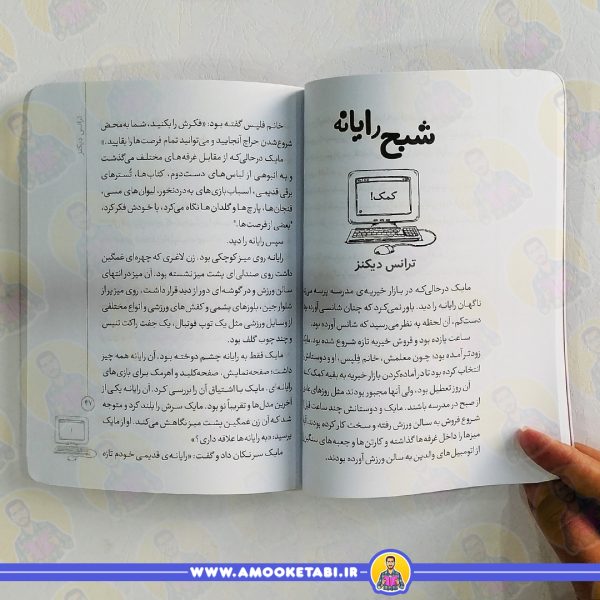 شبح رایانه
کمک!
ترانس دیکنز
مایک درحالی‌که در بازار خیریه‌ی مدرسه پرسه می‌ز
ناگهان رایانه را دید. باور نمی‌کرد که چنان شانسی آورده
دست‌کم، آن لحظه به نظر می‌رسید که شانس آورده بود.
ساعت یازده بود و فروش خیریه تازه شروع شده بود.
زودتر آمده بود؛ چون معلمش، خانم فلپس، او و دوستانش
انتخاب کرده بود تا در آماده‌کردن بازار خیریه به بقیه کمک
آن روز تعطیل بود، ولی آنها مجبور بودند مثل روزهای
از صبح در مدرسه باشند. مایک و دوستانش چند ساعت قبل
شروع فروش به سالن ورزش رفته و سخت کار کرده بودند.
میزها را داخل غرفه‌ها گذاشته و کارتن‌ها و جعبه‌های سنگین
از اتومبیل‌های والدین به سالن ورزش آورده بودند.
ترانس دیکنز
خانم فلپس گفته بود: «فکرش را بکنید، شما به‌محض
شروع‌شدن حراج آنجایید و می‌توانید تمام فرصت‌ها را بقاپید.»
مایک درحالی‌که از مقابل غرفه‌های مختلف می‌گذشت
و به انبوهی از لباس‌های دست‌دوم، کتاب‌ها، تُسترهای
برقی قدیمی، اسباب‌بازی‌های به‌دردنخور، لیوان‌های مسی،
فنجان‌ها، پارچ‌ها و گلدان‌ها نگاه می‌کرد، با خودش فکر کرد،
"بعضی از فرصت‌ها."
سپس رایانه را دید.
رایانه روی میز کوچکی بود. زن لاغری که چهره‌ای غمگین
داشت روی صندلی‌ای پشت میز نشسته بود. آن میز در انتهای
سالن ورزش و در گوشه‌ای دور از دید قرار داشت، روی میز پر از
شلوار جین، بلوزهای پشمی و کفش‌های ورزشی و انواع مختلفی
از وسایل ورزشی مثل یک توپ فوتبال، یک جفت راکت تنیس
و چند چوب گلف بود.
مایک فقط به رایانه چشم دوخته بود. آن رایانه همه چیز
داشت؛ صفحه‌نمایش، صفحه‌کلید و اهرمک برای بازی‌های
رایانه‌ای. مایک با اشتیاق آن را بررسی کرد. آن رایانه یکی از
آخرین مدل‌ها و تقریباً نو بود. مایک سرش را بلند کرد و متوجه
شد که آن زن غمگین پشت میز نگاهش می‌کند. او از مایک
پرسید: «به رایانه‌ها علاقه داری؟»
مایک سر تکان داد و گفت: «رایانه‌ی قدیمی خودم تازه
۴۱
WWW.AMOOKETABI.IR